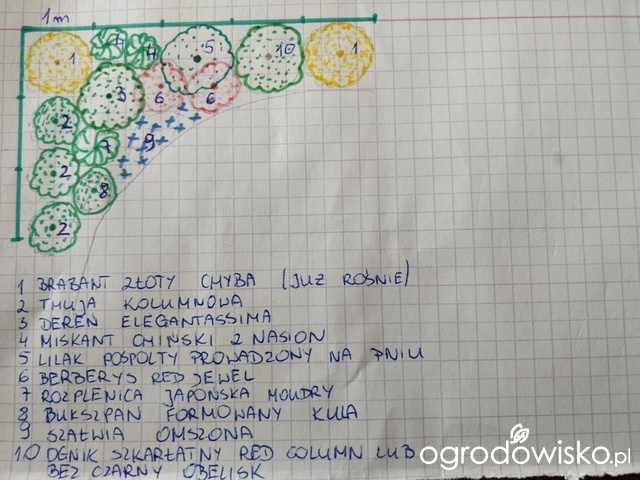 1m
1 4 4 5 10 1
3 6 6
2 9
7
2 8
2
1 BRABANT ZŁOTY CHYBA (JUŻ ROŚNIE)
2 THUJA KOLUMNOWA
3 DEREŃ ELEGANTASSIMA
4 MISKANT CHIŃSKI Z NASION
5 LILAK POSPOLTY PROWADZONY NA PNIU
6 BERBERYS RED JEWEL
7 ROZPLENICA JAPOŃSKA MOUDRY
8 BUKSZPAN FORMOWANY KULA
9 SZAŁWIA OMSZONA
10 OGNIK SZKARŁATNY RED COLUMN LUB
BEZ CZARNY OBELISK
ogrodowisko.pl